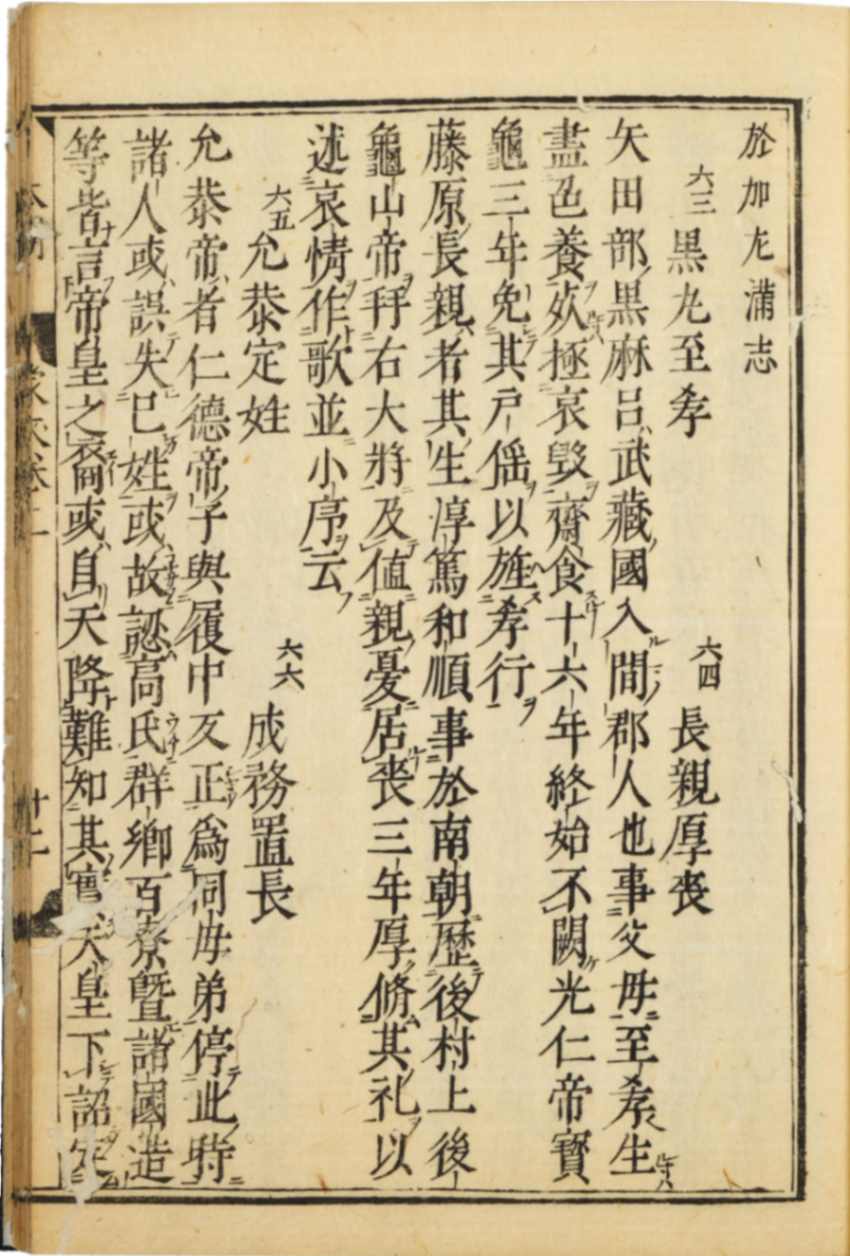 於加尤滿志
六三 黒丸至孝 六四 長親厚喪
矢田部黒麻呂武藏國入間郡人也事父母至孝生
盡色養歿極哀毀齋食十六年終始不闕光仁帝寶
龜三年免其戸徭以旌孝行
藤原長親者其生淳篤和順事於南朝歴後村上後
龜山帝拜右大將及値親憂居喪三年厚脩其礼以
述哀情作歌並小序云
六五 允恭定姓 六六 成務置長
允恭帝者仁德帝子與履中反正爲同母弟停此時
諸人或誤失己姓或故認高氏群卿百寮曁諸國造
等皆言帝皇之裔或自天降難知其實天皇下詔
蒙求卷上
十二